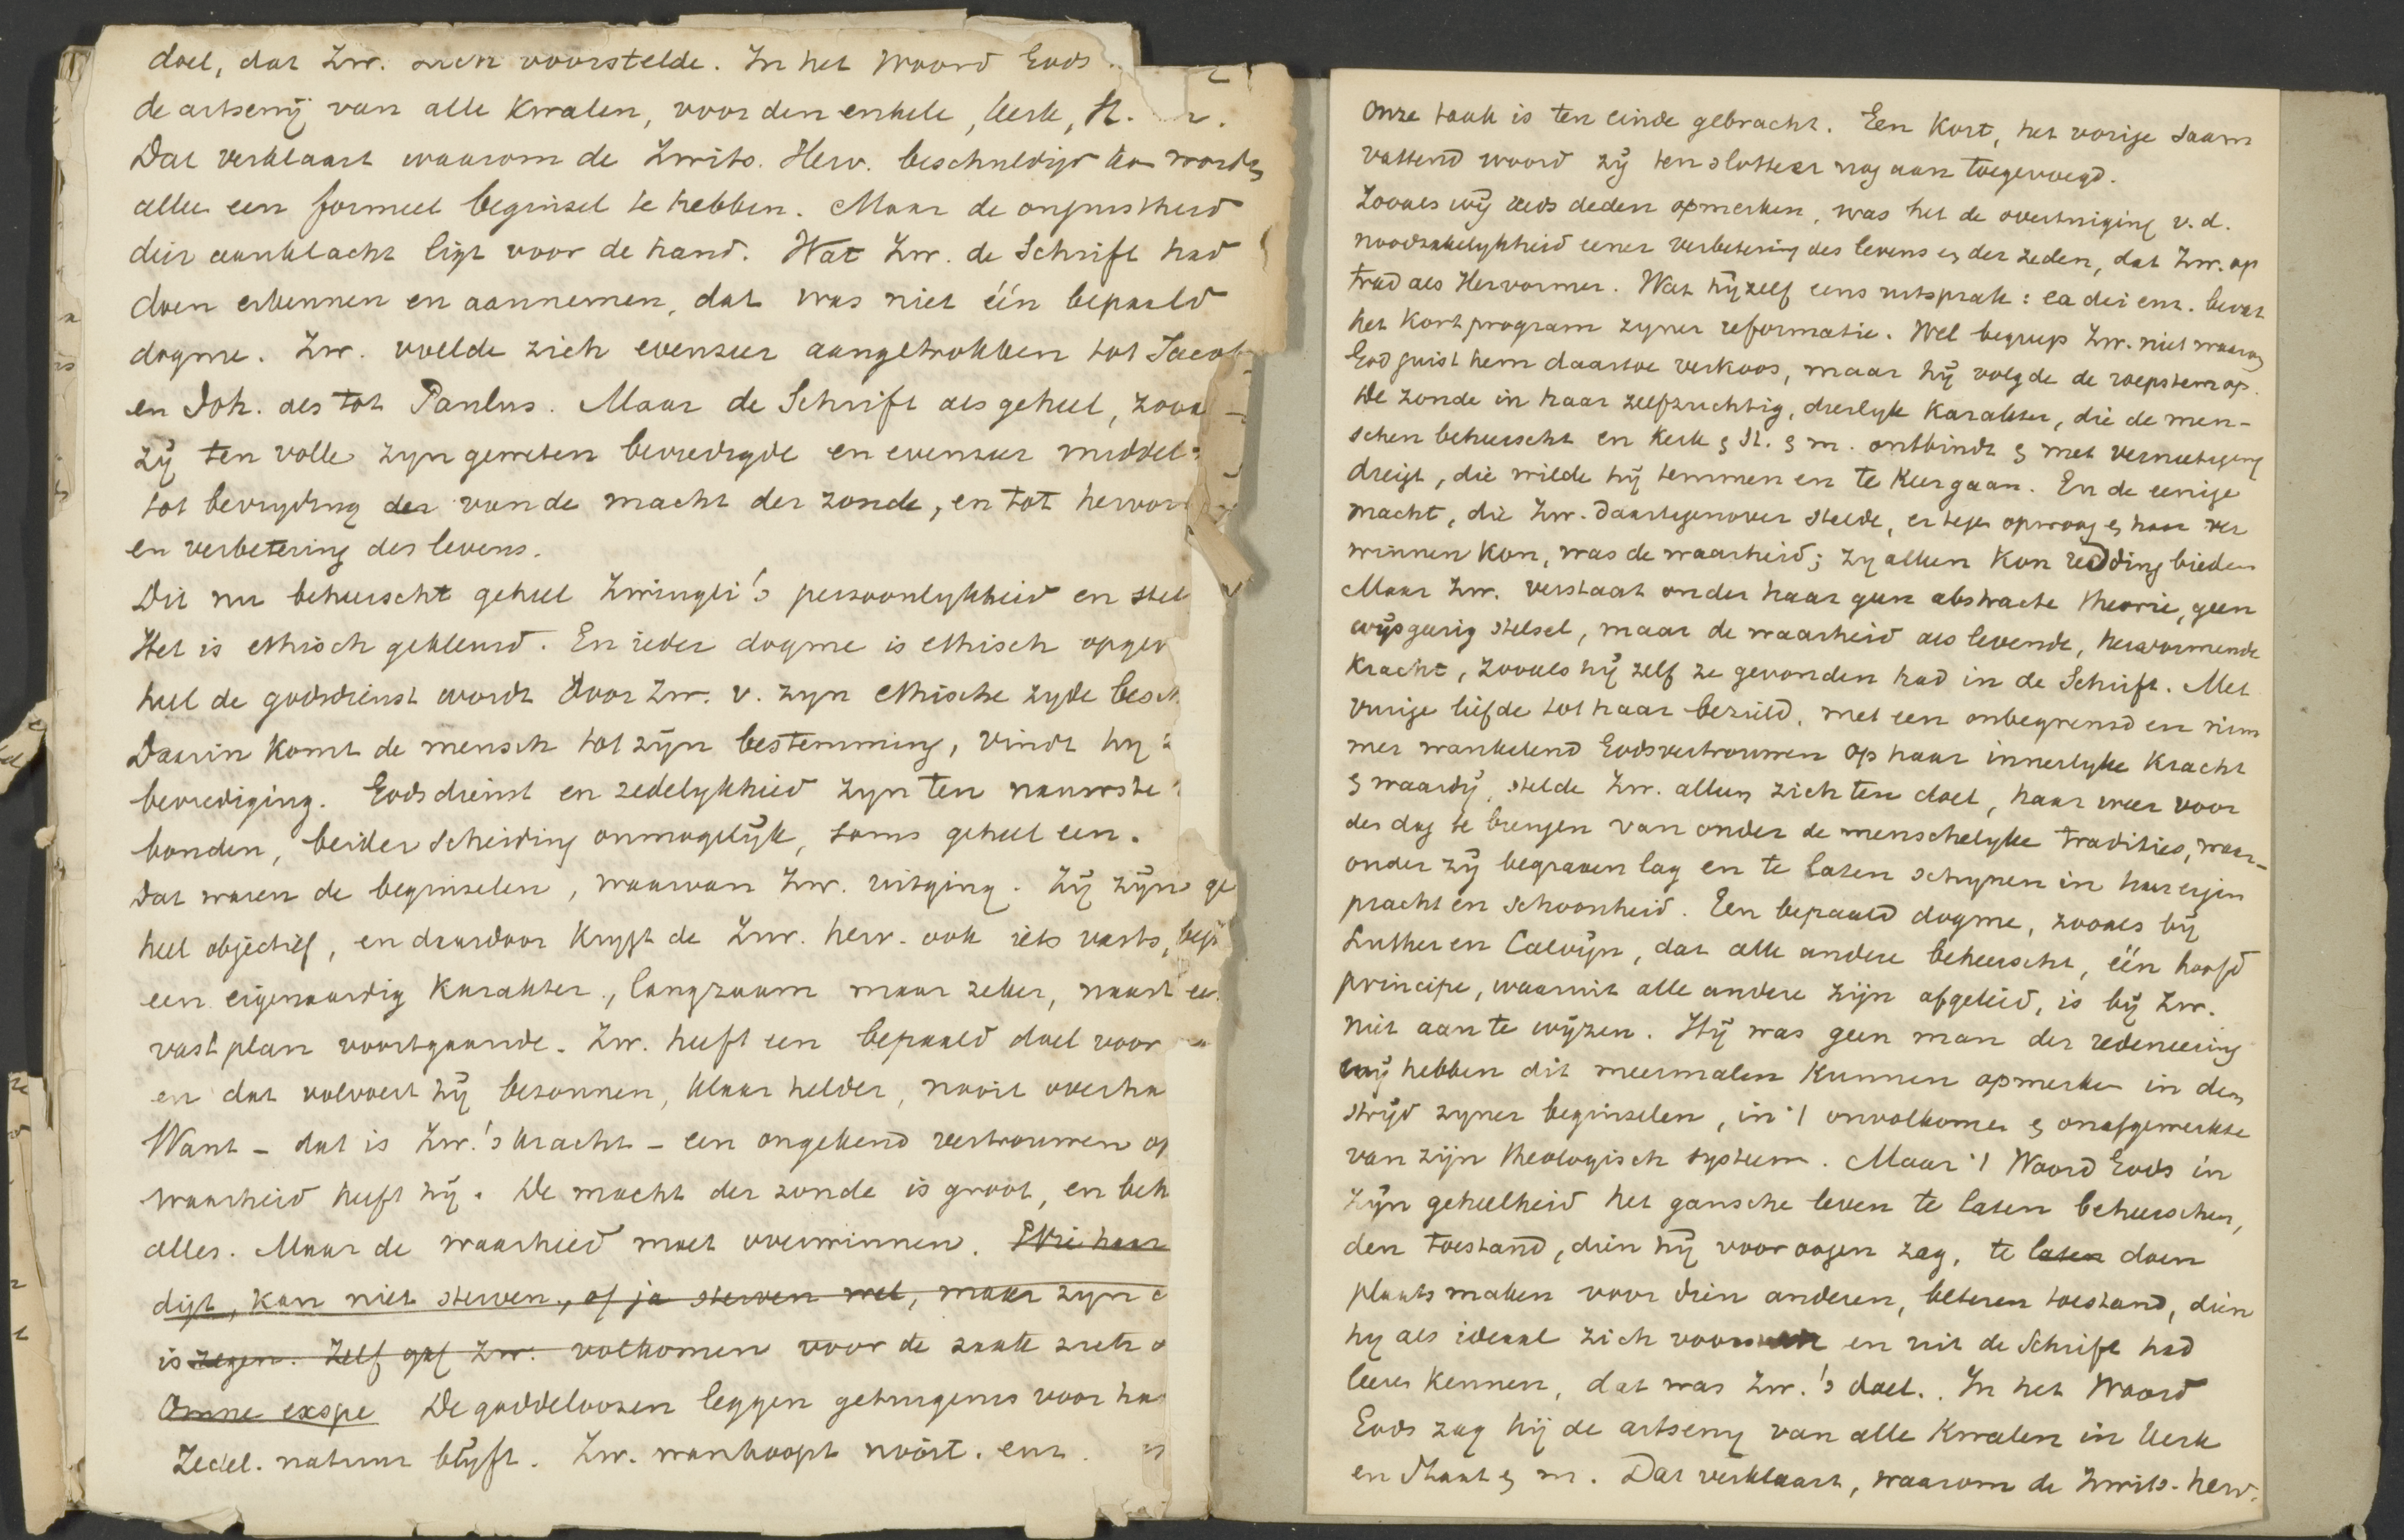 doel, dat Zw. zich voorstelde. In het Woord Gods
de artseny van alle kwalen, voor den enkele, kerk, St.
Dat verklaart waarom de Zwits. Herv. beschuldigd kon worden
alleen een formeel beginsel te hebben. Maar de onjuistheid
dier aanklacht ligt voor de hand. Wat Zw. de Schrift had
doen erkennen en aannemen, dat was niet één bepaald
dogme. Zw. voelde zich evenzeer aangetrokken tot Jacob
en Joh. als tot Paulus. Maar de Schrift als geheel, zooa
zij ten volle zyn geweten bevredigde en evenzeer middel
tot bevryding der van de macht der zonde, en tot hervor
en verbetering des levens.
Dit nu beheerscht geheel Zwingli's persoonlykheid en stel
Het is ethisch gekleurd. En ieder dogme is ethisch opgev
heel de godsdienst wordt door Zw. v. zyn ethische zyde besch
Daarin komt de mensch tot zijn bestemming, vindt hy
bevrediging. Godsdienst en zedelykheid zyn ten nauwste
bonden, beider scheiding onmogelijk, soms geheel een.
Dat waren de beginselen, waarvan Zw. uitging. Zij zijn ge
heel objectief, en daardoor krygt de Zw. herv. ook iets vasts,
een eigenaardig karakter, langzaam maar zeker, naar een
vast plan voortgaande. Zw. heeft een bepaald doel voor
en dat volvoert hij bezonnen, klaar helder, nooit overha
Want - dat is Zw.'s kracht - een ongekend vertrouwen op
waarheid heeft hij. De macht der zonde is groot, en beh
alles. Maar de waarheid moet overwinnen. Wie haar
digt, kan niet sterven, of ja sterven wel, maar zyn
is zegen. Zelf gaf Zw. volkomen voor de zaak zich
Omne exspe De goddeloozen leggen getuigenis voor haar
Zedel. natuur blijft. Zw. wanhoopt nooit. enz.
Onze taak is ten einde gebracht. Een kort, het vorige saam
vattend woord zij ten slotte er nog aan toegevoegd.
Zooals wij reeds deden opmerken, was het de overtuiging v.d.
noodzakelykheid eener verbetering des levens en der zeden, dat Zw. op
trad als Hervormer. Wat hijzelf eens uitsprak: ea dei enz. bevat
het kort program zyner reformatie. Wel begreep Zw. niet waarom
God juist hem daartoe verkoos, maar hij volgde de roepstem op.
De zonde in haar zelfzuchtig, dierlyk karakter, die de men-
schen beheerscht en kerk en St. en m. ontbindt en met vernietiging
dreigt, die wilde hij temmen en te keer gaan. En de eenige
macht, die Zw. daartegenover stelde, er tegen opwoog en haar ver
winnen kon, was de waarheid; zy alleen kon redding bieden
Maar Zw. verstaat onder haar geen abstracte theorie, geen
wijsgeerig stelsel, maar de waarheid als levende, hervormende
kracht, zooals hij zelf ze gevonden had in de Schrift. Met
vurige liefde tot haar bezield, met een onbegrensd en nim
mer wankelend Godsvertrouwen op haar innerlyke kracht
en waardij, stelde Zw. alleen zich ten doel, haar weer voor
den dag te brengen van onder de menschelyke tradities, waar-
onder zij begraven lag en te laten schynen in haar eigen
pracht en schoonheid. Een bepaald dogme, zooals bij
Luther en Calvijn, dat alle andere beheerscht, één hoofd
principe, waaruit alle andere zijn afgeleid, is bij Zw.
niet aan te wijzen. Hij was geen man der redeneering
wij hebben dit meermalen kunnen opmerken in den
strijd zyner beginselen, in 't onvolkomen en onafgewerkte
van zijn theologisch systeem. Maar 't Woord Gods in
zijn geheelheid het gansche leven te laten beheerschen,
den toestand, dien hij voor oogen zag, te laten doen
plaats maken voor dien anderen, beteren toestand, dien
hy als ideaal zich en uit de Schrift had
leeren kennen, dat was Zw.'s doel. In het Woord
Gods zag hij de artseny van alle kwalen in kerk
en Staat en m. Dat verklaart, waarom de Zwits. herv.